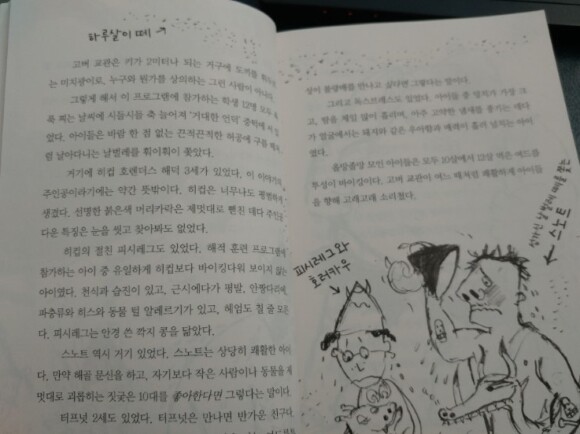 하루살이 떼
고버 교관은 키가 2미터나 되는 거구에 도끼를 휘두르
는 미치광이로, 누구와 뭔가를 상의하는 그런 사람이 아니다.
그렇게 해서 이 프로그램에 참가하는 학생 12명 모두 푹
푹 찌는 날씨에 시들시들 축 늘어져 '거대한 언덕' 중턱에 서 있
었다. 아이들은 바람 한 점 없는 끈적끈적한 허공에 구름
럼 날아다니는 날벌레를 휘이휘이 쫓았다.
거기에 히컵 호렌더스 해덕 3세가 있었다. 이
주인공이라기에는 약간 뜻밖이다. 히컵은 너무나도 평범하게
생겼다. 선명한 붉은색 머리카락은 제멋대로 뻗친 데다 주인공
다른 특징은 눈을 씻고 찾아봐도 없었다.
히컵의 절친 피시레그도 있었다. 해적 훈련 프로그램에
참가하는 아이 중 유일하게 히컵보다 바이킹다워 보이지 않는
아이였다. 천식과 습진이 있고, 근시에다가 평발, 안짱다리에,
파충류와 히스와 동물 털 알레르기가 있고, 헤엄도 칠 줄 모른
다. 피시레그는 안경 쓴 깍지 콩을 닮았다.
스노트 역시 거기 있었다. 스노트는 상당히 쾌활한 아이
다. 만약 해골 문신을 하고, 자기보다 작은 사람이나 동물을 제
멋대로 괴롭히는 짓궂은 10대를 좋아한다면 그렇다는 말이다.
터프넛 2세도 있었다. 터프넛은 만나면 반가운 친구다
상어 꿈을 만나고 싶다면 그렇다는 말이다.
그리고 독스브레스도 있었다. 아이들 중 덩치가 가장 크
고, 땀을 제일 많이 흘리며, 아주 고약한 냄새를 풍기는 데다
가 얼굴에서는 돼지와 같은 우아함과 매력이 흘러 넘치는 아이
였다.
올망졸망 모인 아이들은 모두 10살에서 12살 먹은 여드름
투성이 바이킹이다. 고버 교관이 여느 때처럼 쾌활하게 아이들
을 향해 고래고래 소리쳤다.
피시레그와
호러카우
날벌레 떼를 쫓는
스노트